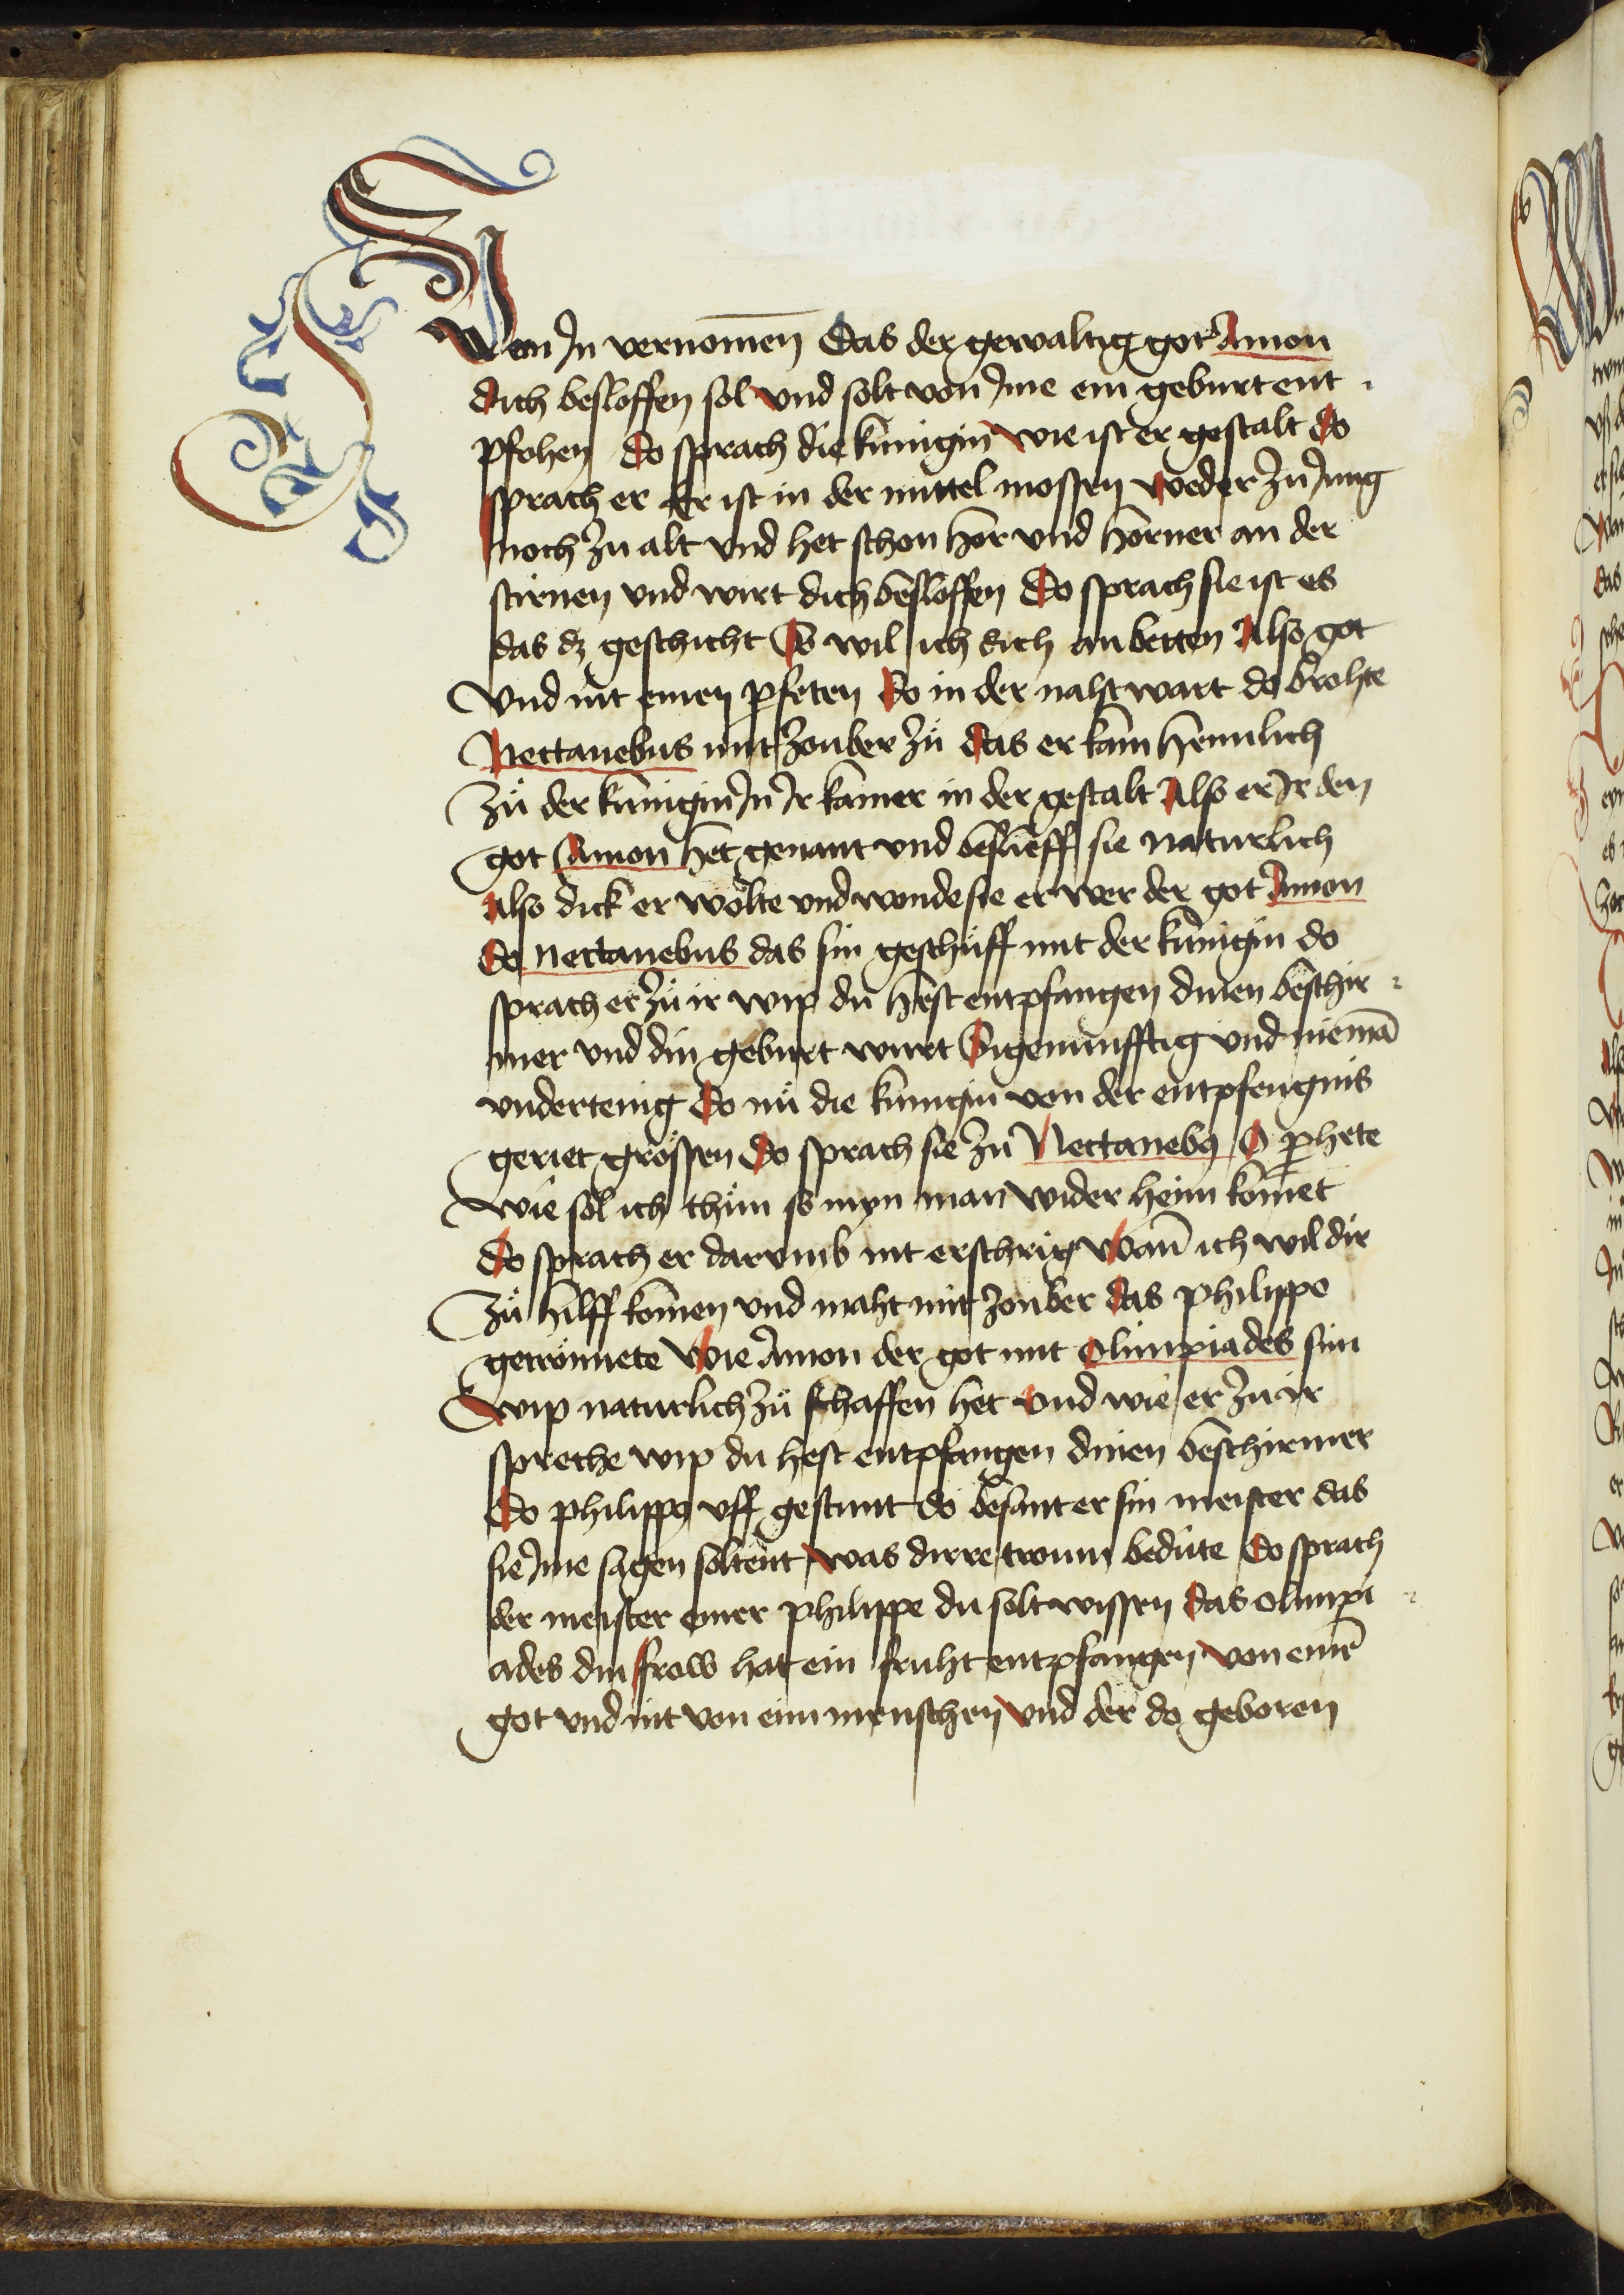 Wenn Jn vernomen das der gewaltig got Amon
dich besloffen sol vnd solt von Jme ein geburt ent
pfohen do sprach die kunigin wie ist er gestalt do
sprach er Er ist in der mittel mossen weder zu Jung
noch zu alt vnd het schon hor vnd horner an der
stirnen vnd wirt dich besloffen do sprach sie ist es
das dz geschicht So wil ich dich an betten Also got
vnd nit einen pfeten do in der naht wart do brohte
Nectanebus mit zouber zuͦ das er kam heimlich
zuͦ der kunigin Jn Jr kamer in der gestalt Also er Jr den
got Amon het genant vnd beslieff sie naturlich
Also dick er wolte vnd wonde sie er wer der got Amon
do Nectanebus das sin geschuͦff mit der kunigin do
sprach er zuͦ ir wip du hest entpfangen dinen beschir
mer vnd din geburt wurt Sigenunfftig vnd niemā
vndertenig do nuͦ die kunigin von der entpfengnis
geriet grossen do sprach sie zu Nectaneb9 O pphete
wie sol ich thuͦn so myn man wider heim komet
do sprach er darvmb nit erschrig Wan̄ ich wil dir
zuͦ hilff komen vnd maht mit zouber das philippo
getroumete Wie Amon der got mit Olimpiades sim
wip naturlich zuͦ schaffen het vnd wie er zu ir
spreche wip du hest entpfangen dinen beschirmer
do philipp9 vff gestunt do besant er sin meister das
sie Jme sagen soltent was dirre troum bedute do sprach
der meister einer philippe du solt wissen das olimpi
ades din frow hat ein fruht entpfangen von eim̄
got vnd nit von eim menschen vnd der do geboren